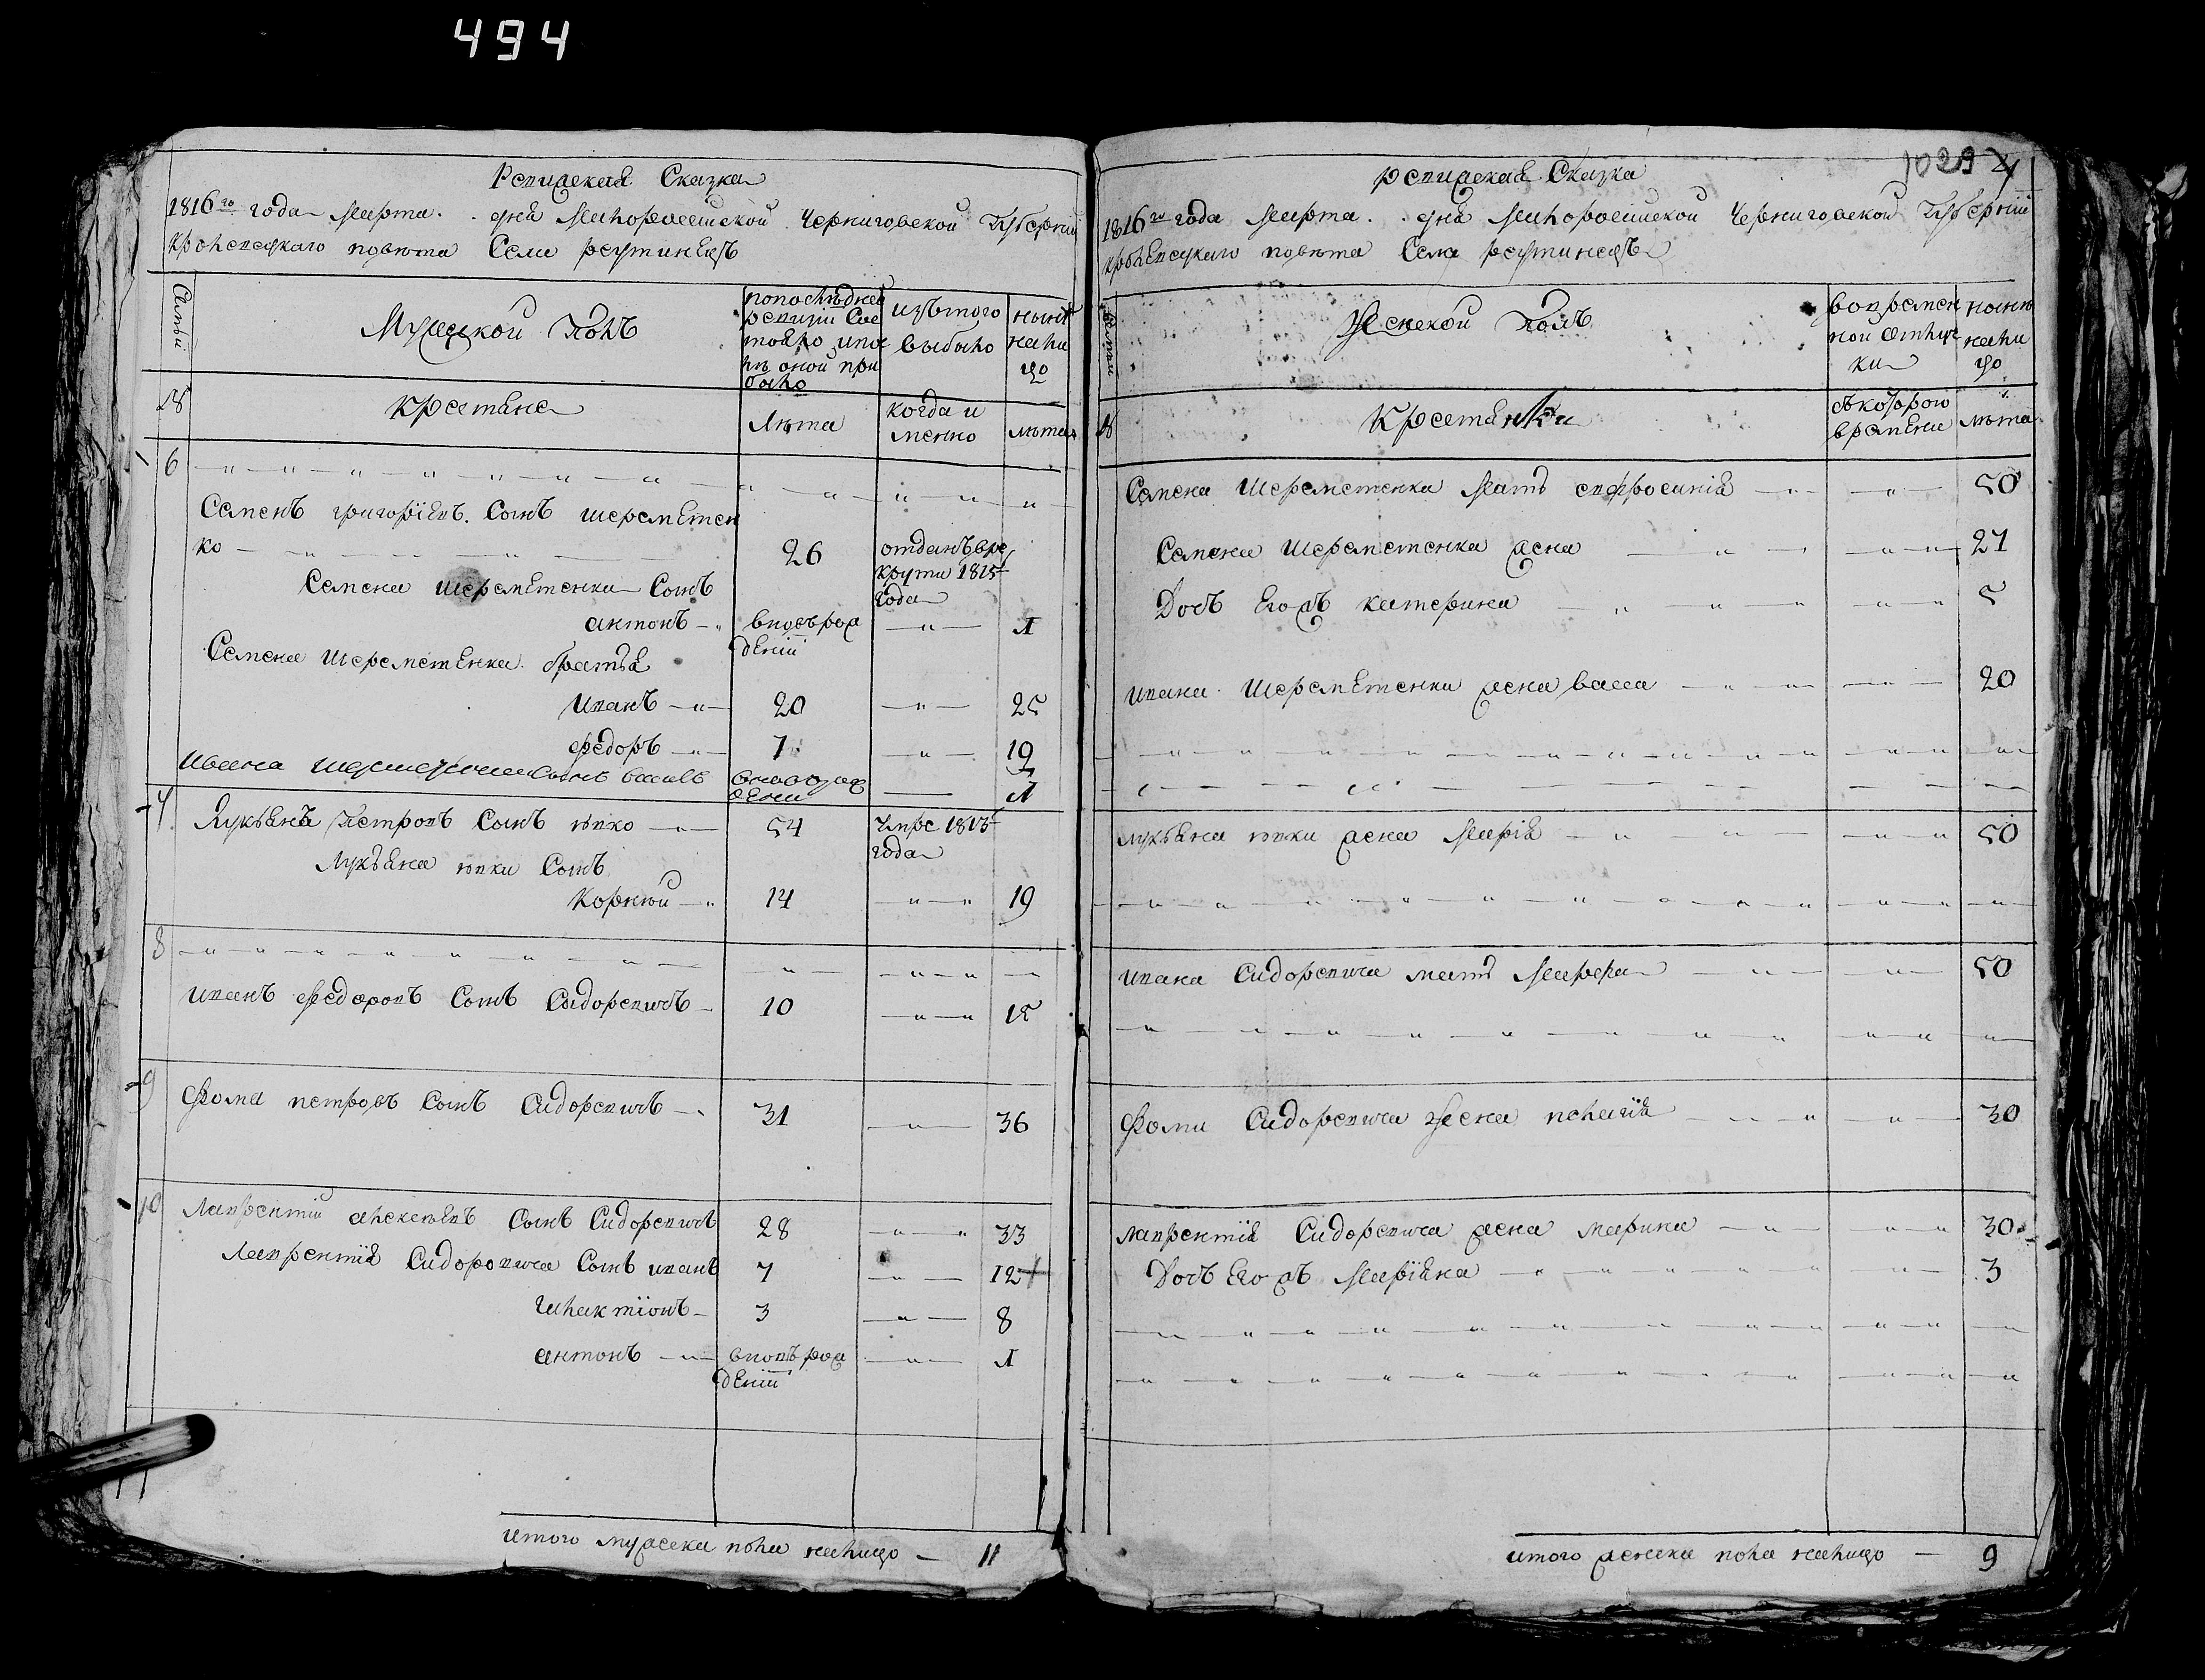 494
Ревизская Сказка
1816го года Марта . . дня Малороссийской Черниговской Губернии
Кролевецкаго повета Села реутинецъ
Семьи
Мужской Полъ
попоследней
ревизии Сос
тояло ипос
ле оной при
было
изътого
выбыло
ныне
нали
цо
№
крестяне
Лета
когда и
менно
лета
6
Семенъ григоріевъ Сынъ шереметен
ко
26
отданъ вре
круты 1815
года
Семена шереметенка Сынъ
антонъ
вновърож
деній
1
Семена Шереметенка братья
иванъ
20
25
федоръ
7
12
Ивана Шереметенка Сынъ василь
вноворож
дени
1
7
Лукьянъ Петровъ Сынъ ювко
54
Умре 1813
года
Лукьяна ювки Сынъ
Корней
14
19
8
иванъ федоровъ Сынъ Сидоревичъ
10
15
9
Фома петровъ Сынъ Сидоревичъ
31
36
10
Лаврентий алексеевъ Сынъ Сидоревичъ
28
33
Лаврентія Сидоровича Сынъ иванъ
7
12
Галактіонъ
3
8
антонъ
вновърож
деній
1
итого мужска пола налицо — 11
1029
ревизская Сказка
1816го года Марта . . дня Малороссийской Черниговской Губерній
кролевецкаго повета Села реутинецъ
Семьи
Женской Полъ
вовремен
ной отлуч
ки
ныне
нали
цо
№
Крестянки
съкоторого
времени
лета
Семена Шереметенка Мать евфросинія
50
Семена Шереметенка жена
21
Дочь Егожъ катерина
5
ивана Шереметенка жена васса
20
лукьяна ювки жена Марія
50
ивана Сидоревича мать Марфа
50
Фомы Сидоревича Жена пелагія
30
лаврентія Сидоревича жена марина
30
Дочь Егожъ Маріяна
3
итого женска пола налицо — 9